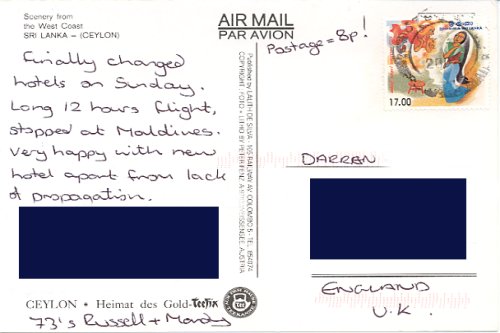 Scenery from
the West Coast
SRI LANKA - (CEYLON)
Finally changed
hotels on Sunday.
Long 12 hours flight,
stopped at Maldives.
Very happy with new
hotel apart from lack
of propagation.
CEYLON • Heimat des Gold-Teefix
73's Russell + Mandy
AIR MAIL
PAR AVION
Postage = 8p!
17.00
DARRAN
ENGLAND
U.K.